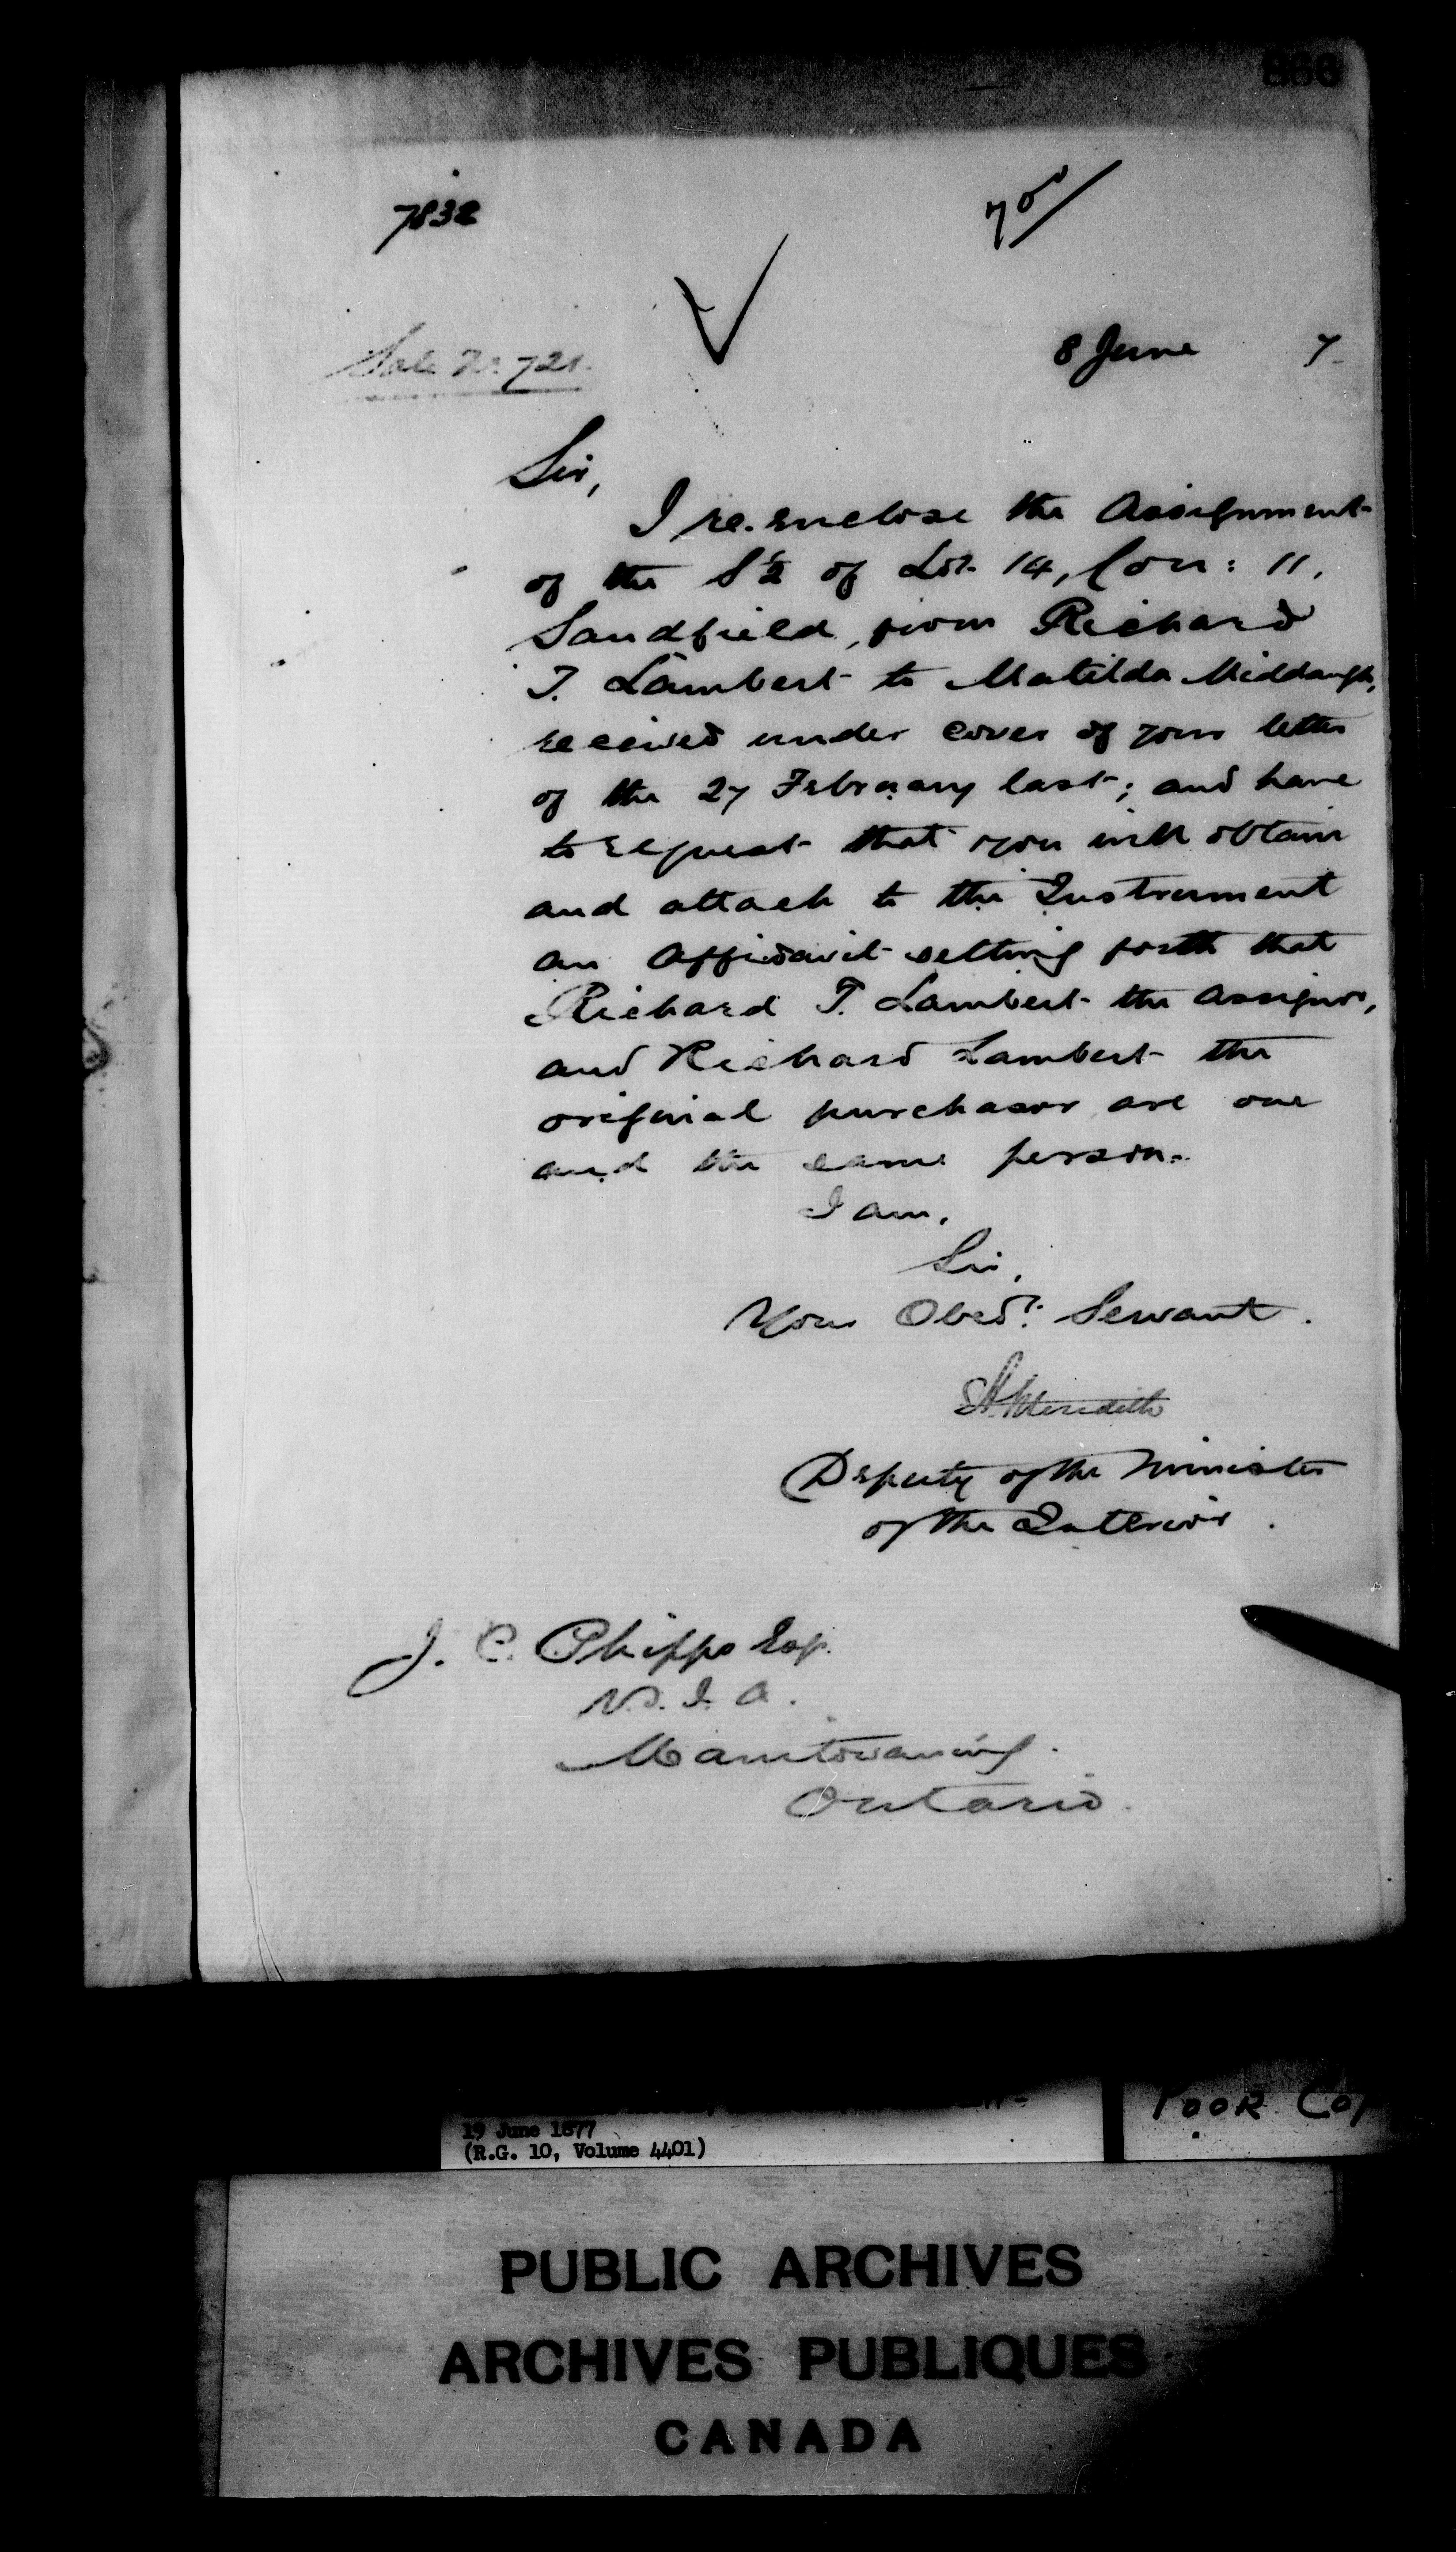 868
7832
Sale No 721.
8 June 7
Sir,
I re-enclose the Assignment
of the S½ of Lot 14, Con: 11,
Sandfield, from Richard
T. Lambert to Matilda Middaugh,
received under cover of your letter
of the 27 February last; and have
to request that you will obtain
and attach to the Instrument
an Affidavit setting forth that
Richard T. Lambert the Assignor,
and Richard Lambert the
original purchasor are one
and the same person.
I am,
Sir,
Your Obedt. Servant.
Meredith
Deputy of the Minister
of the Interior.
J. C. Phipps Esq.
V.S.I.A.
Manitowaning.
Ontario.
19 June 1877
(R.G. 10, Volume 4401)
POOR COP
PUBLIC ARCHIVES
ARCHIVES PUBLIQUES
CANADA